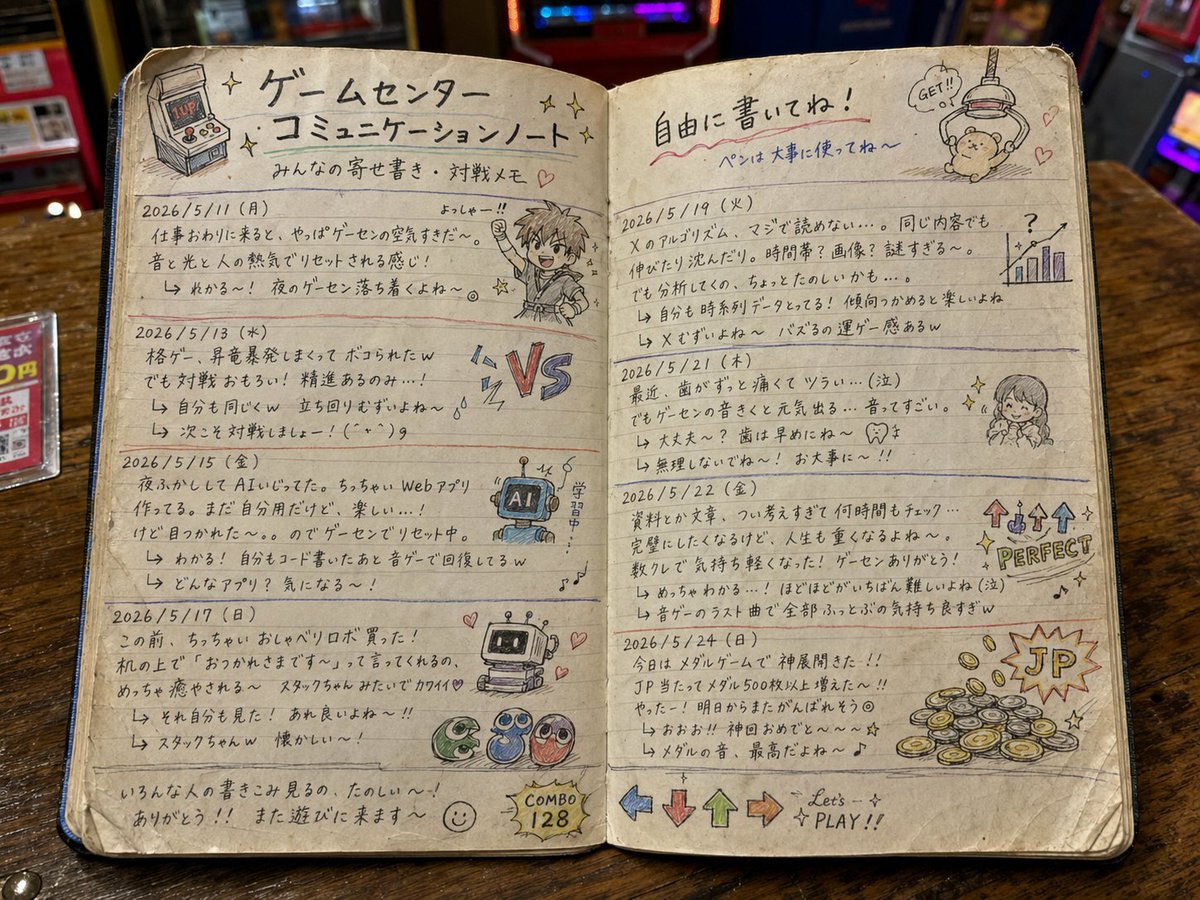 1up
ゲームセンター
コミュニケーションノート
みんなの寄せ書き・対戦メモ
2026/5/11 (月)
よっしゃー!!
仕事おわりに来ると、やっぱゲーセンの空気すきだ〜。
音と光と人の熱気でリセットされる感じ!
↳ わかる〜! 夜のゲーセン落ち着くよね〜◎
2026/5/13 (水)
格ゲー、昇竜暴発しまくってボコられたw
でも対戦おもろい! 精進あるのみ…!
↳ 自分も同じくw 立ち回りむずいよね〜
↳ 次こそ対戦しましょー!
VS
2026/5/15 (金)
夜ふかししてAIいじってた。ちっちゃいWebアプリ
作ってる。まだ自分用だけど、楽しい…!
けど目つかれた〜。。のでゲーセンでリセット中。
↳ わかる! 自分もコード書いたあと音ゲーで回復してるw
↳ どんなアプリ? 気になる〜!
AI
学習中…
2026/5/17 (日)
この前、ちっちゃいおしゃべりロボ買った!
机の上で「おつかれさまです〜」って言ってくれるの、
めっちゃ癒やされる〜 スタックちゃんみたいでカワイイ♥
↳ それ自分も見た! あれ良いよね〜!!
↳ スタックちゃんw 懐かしい〜!
いろんな人の書きこみ見るの、たのしい〜!
ありがとう!! また遊びに来ます〜
COMBO
128
自由に書いてね!
ペンは大事に使ってね〜
GET!!
2026/5/19 (火)
Xのアルゴリズム、マジで読めない…。同じ内容でも
伸びたり沈んだり。時間帯?画像?謎すぎる〜。
でも分析してくの、ちょっとたのしいかも…。
↳ 自分も時系列データとってる! 傾向つかめると楽しいよね
↳ Xむずいよね〜 バズるの運ゲー感あるw
?
2026/5/21 (木)
最近、歯がずっと痛くてツラい…(泣)
でもゲーセンの音きくと元気出る…音ってすごい。
↳ 大丈夫〜? 歯は早めにね〜
↳ 無理しないでね〜! お大事に〜!!
2026/5/22 (金)
資料とか文章、つい考えすぎて何時間もチェック…
完璧にしたくなるけど、人生も重くなるよね〜。
数クレで気持ち軽くなった! ゲーセンありがとう!
↳ めっちゃわかる…! ほどほどがいちばん難しいよね(泣)
↳ 音ゲーのラスト曲で全部ふっとぶの気持ち良すぎw
PERFECT
2026/5/24 (日)
今日はメダルゲームで神展開きた!!
JP当たってメダル500枚以上増えた〜!!
やったー! 明日からまたがんばれそう◎
↳ おおお!! 神回おめでと〜〜〜☆
↳ メダルの音、最高だよね〜♪
JP
Let's
PLAY!!